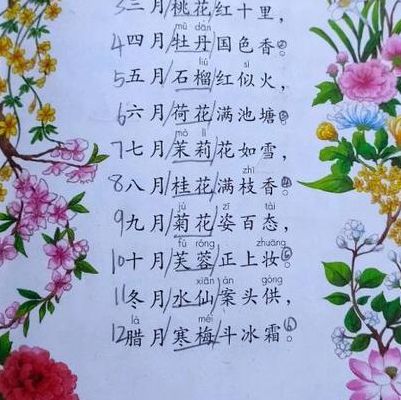 3三月/桃花/红十里，
mǔ dān
4四月/牡丹/国色香②。
liú sì
5五月/石榴/红似火，
6六月/荷花/满池塘③。
mò lì
7七月/茉莉/花如雪，
zhī
8八月/桂花/满枝香④。
jú zī tài
9九月/菊花/姿百态，
fú róng zhuāng
10十月/芙蓉/正上妆⑤。
xiān àn gòng
11冬月/水仙/案头供，
là méi
12腊月/寒梅/斗冰霜⑥。